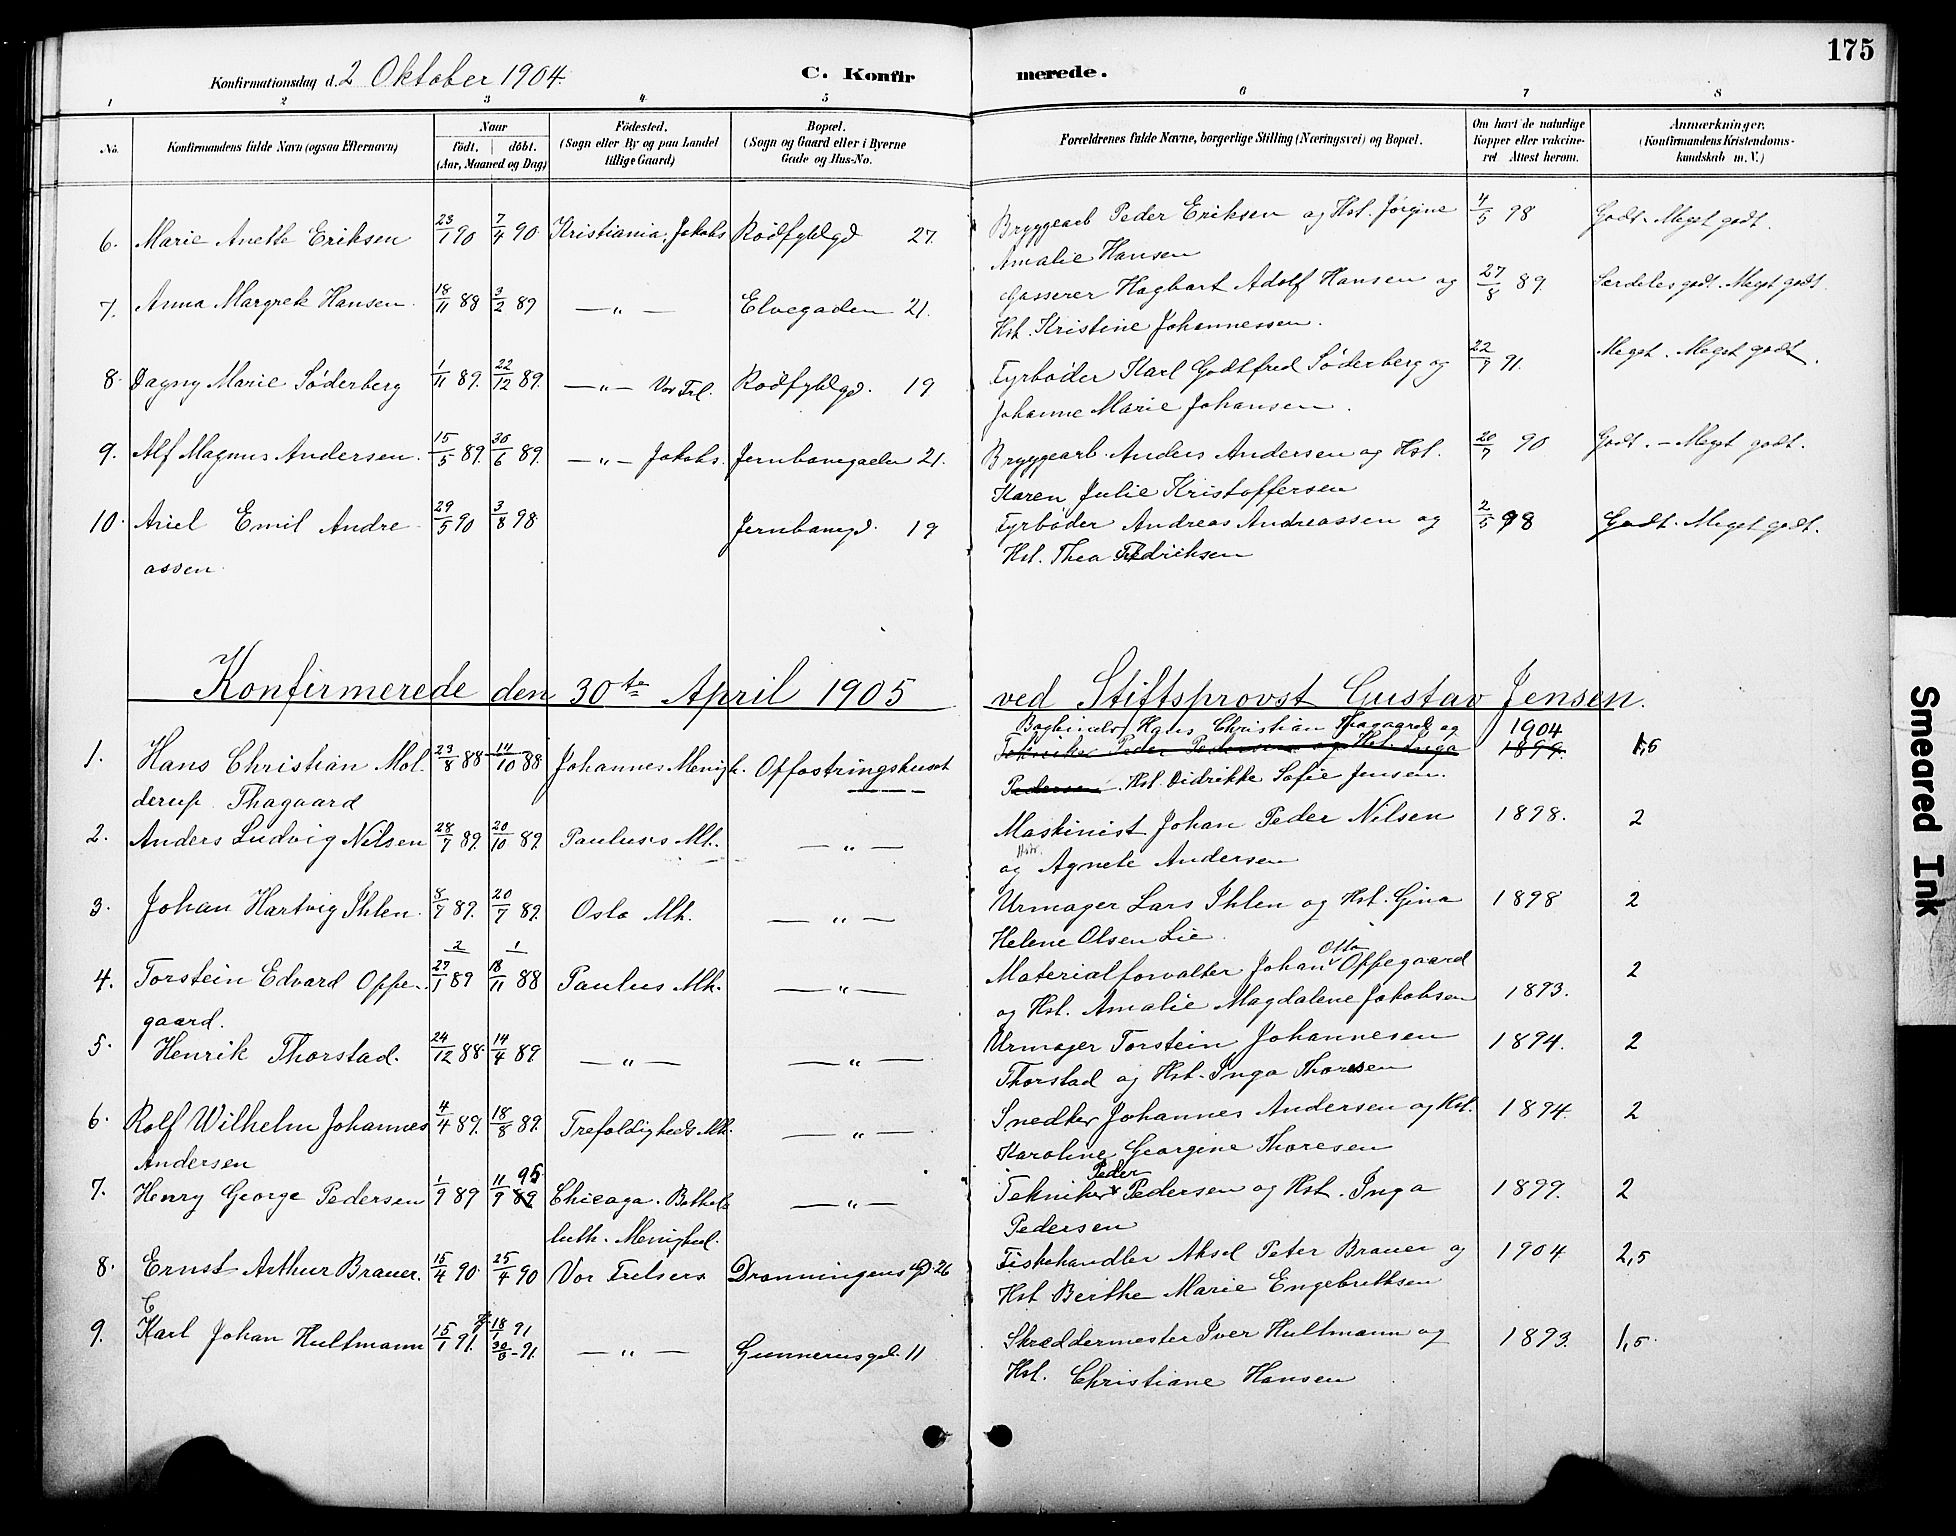 175
Konfirmationsdag d. 2 Oktober 1904.
C. Konfirmerede.
1 2 3 4 5 6 7 8
No. Konfirmandens fulde Navn (ogsaa Efternavn) Naar födt. döbt. (Aar, Maaned og Dag) Födested. (Sogn eller By og paa Landet tillige Gaard) Bopæl. (Sogn og Gaard eller i Byerne Gade og Hus-No. Forældrenes fulde Navne, borgerlige Stilling (Næringsvei) og Bopæl. Om havt de naturlige Kopper eller vakcineret. Attest herom. Anmærkninger. (Konfirmandens Kristendomskundskab m. V.)
6. Marie Anette Eriksen 23/1 90 7/4 90 Kristiania. Jakobs Rødfyldgd 27. Bryggearb Peder Eriksen og Hst. Jørgine 4/5 98 Godt - Meget godt.
Amalie Hansen
7. Anna Margrete Hansen. 18/11 88 3/2 89 — „ — Elvegaden 21. Gasserer Hagbart Adolf Hansen og 27/8 89. Særdeles godt. Meget godt.
Hst. Kristine Johannessen.
8. Dagny Marie Søderberg 1/11 89. 22/12 89. — „ — Vor Frl. Rødfyldgd. 19 Fyrbøder Karl Godtfred Søderberg og 22/9 91. Meget. Meget godt.
Johanne Marie Johansen.
9. Alf Magnus Andersen. 15/5 89. 30/6 89. — „ — Jakobs. Jernbanegaden 21. Bryggearb. Anders Andersen og Hst. 20/7 90 Godt. - Meget godt.
Karen Julie Kristoffersen
10. Ariel Emil Andre- 29/5 90 3/8 98 Jernbanegd. 19 Fyrbøder Andreas Andreassen og 2/5 98 Godt. Meget godt.
assen. Hst. Thea Fredriksen
Konfirmerede den 30te April 1905 ved Stiftsprovst Gustav Jensen.
Bogbinder Hans Christian Thagaard og 1904
1. Hans Christian Mol- 23/8 88 14/10 88 Johannes Menigh. Opfostringshuset Tekniker Peder Pedersen og Hst. Inga 1899. 1,5
derup Thagaard Pedersen. Hst. Didrikke Sofie Jensen.
2. Anders Ludvig Nilsen 28/7 89. 20/10 89. Paulus's Mh. — „ — Maskinist Johan Peder Nilsen 1898. 2
og Hstr. Agnete Andersen
3. Johan Hartvig Ihlen. 8/7 89. 20/7 89. Oslo Mh. — „ — Urmager Lars Ihlen og Hst. Gina 1898 2
Helene Olsen Lie.
2 1
4. Torstein Edvard Oppe- 27/1 89 18/11 88 Paulus Mh. — „ — Materialforvalter Johan Otto Oppegaard 2
gaard. og Hst. Amalie Magdalene Jakobsen 1893.
5. Henrik Thorstad. 24/12 88. 14/4 89 — „ — — „ — Urmager Torstein Johannesen 1894. 2
Thorstad og Hst. Inga Thoresen
6. Rolf Wilhelm Johannes 4/4 89. 18/8 89. Trefoldigheds Mh. — „ — Snedker Johannes Andersen og Hst. 1894. 2
Andersen Karoline Georgine Thoresen
7. Henry George Pedersen 1/9 89 11/9 89 95 Chicago. Bethels — „ — Tekniker Peder Pedersen og Hst. Inga 1899. 2
luth. Menighed. Pedersen
8. Ernst Arthur Brauer. 15/4 90. 25/4 90 Vor Frelsers Dronningens Gd 26 Fiskehandler Aksel Peter Brauer og 1904 2,5
Hst Berthe Marie Engebretsen
9. C Karl Johan Hultmann 15/1 91. 18/1 91 30/3 - 91. — „ — Gunnerusgd. 11 Skræddermester Iver Hultmann og 1893. 1,5.
Hst. Christiane Hansen
Smeared Ink